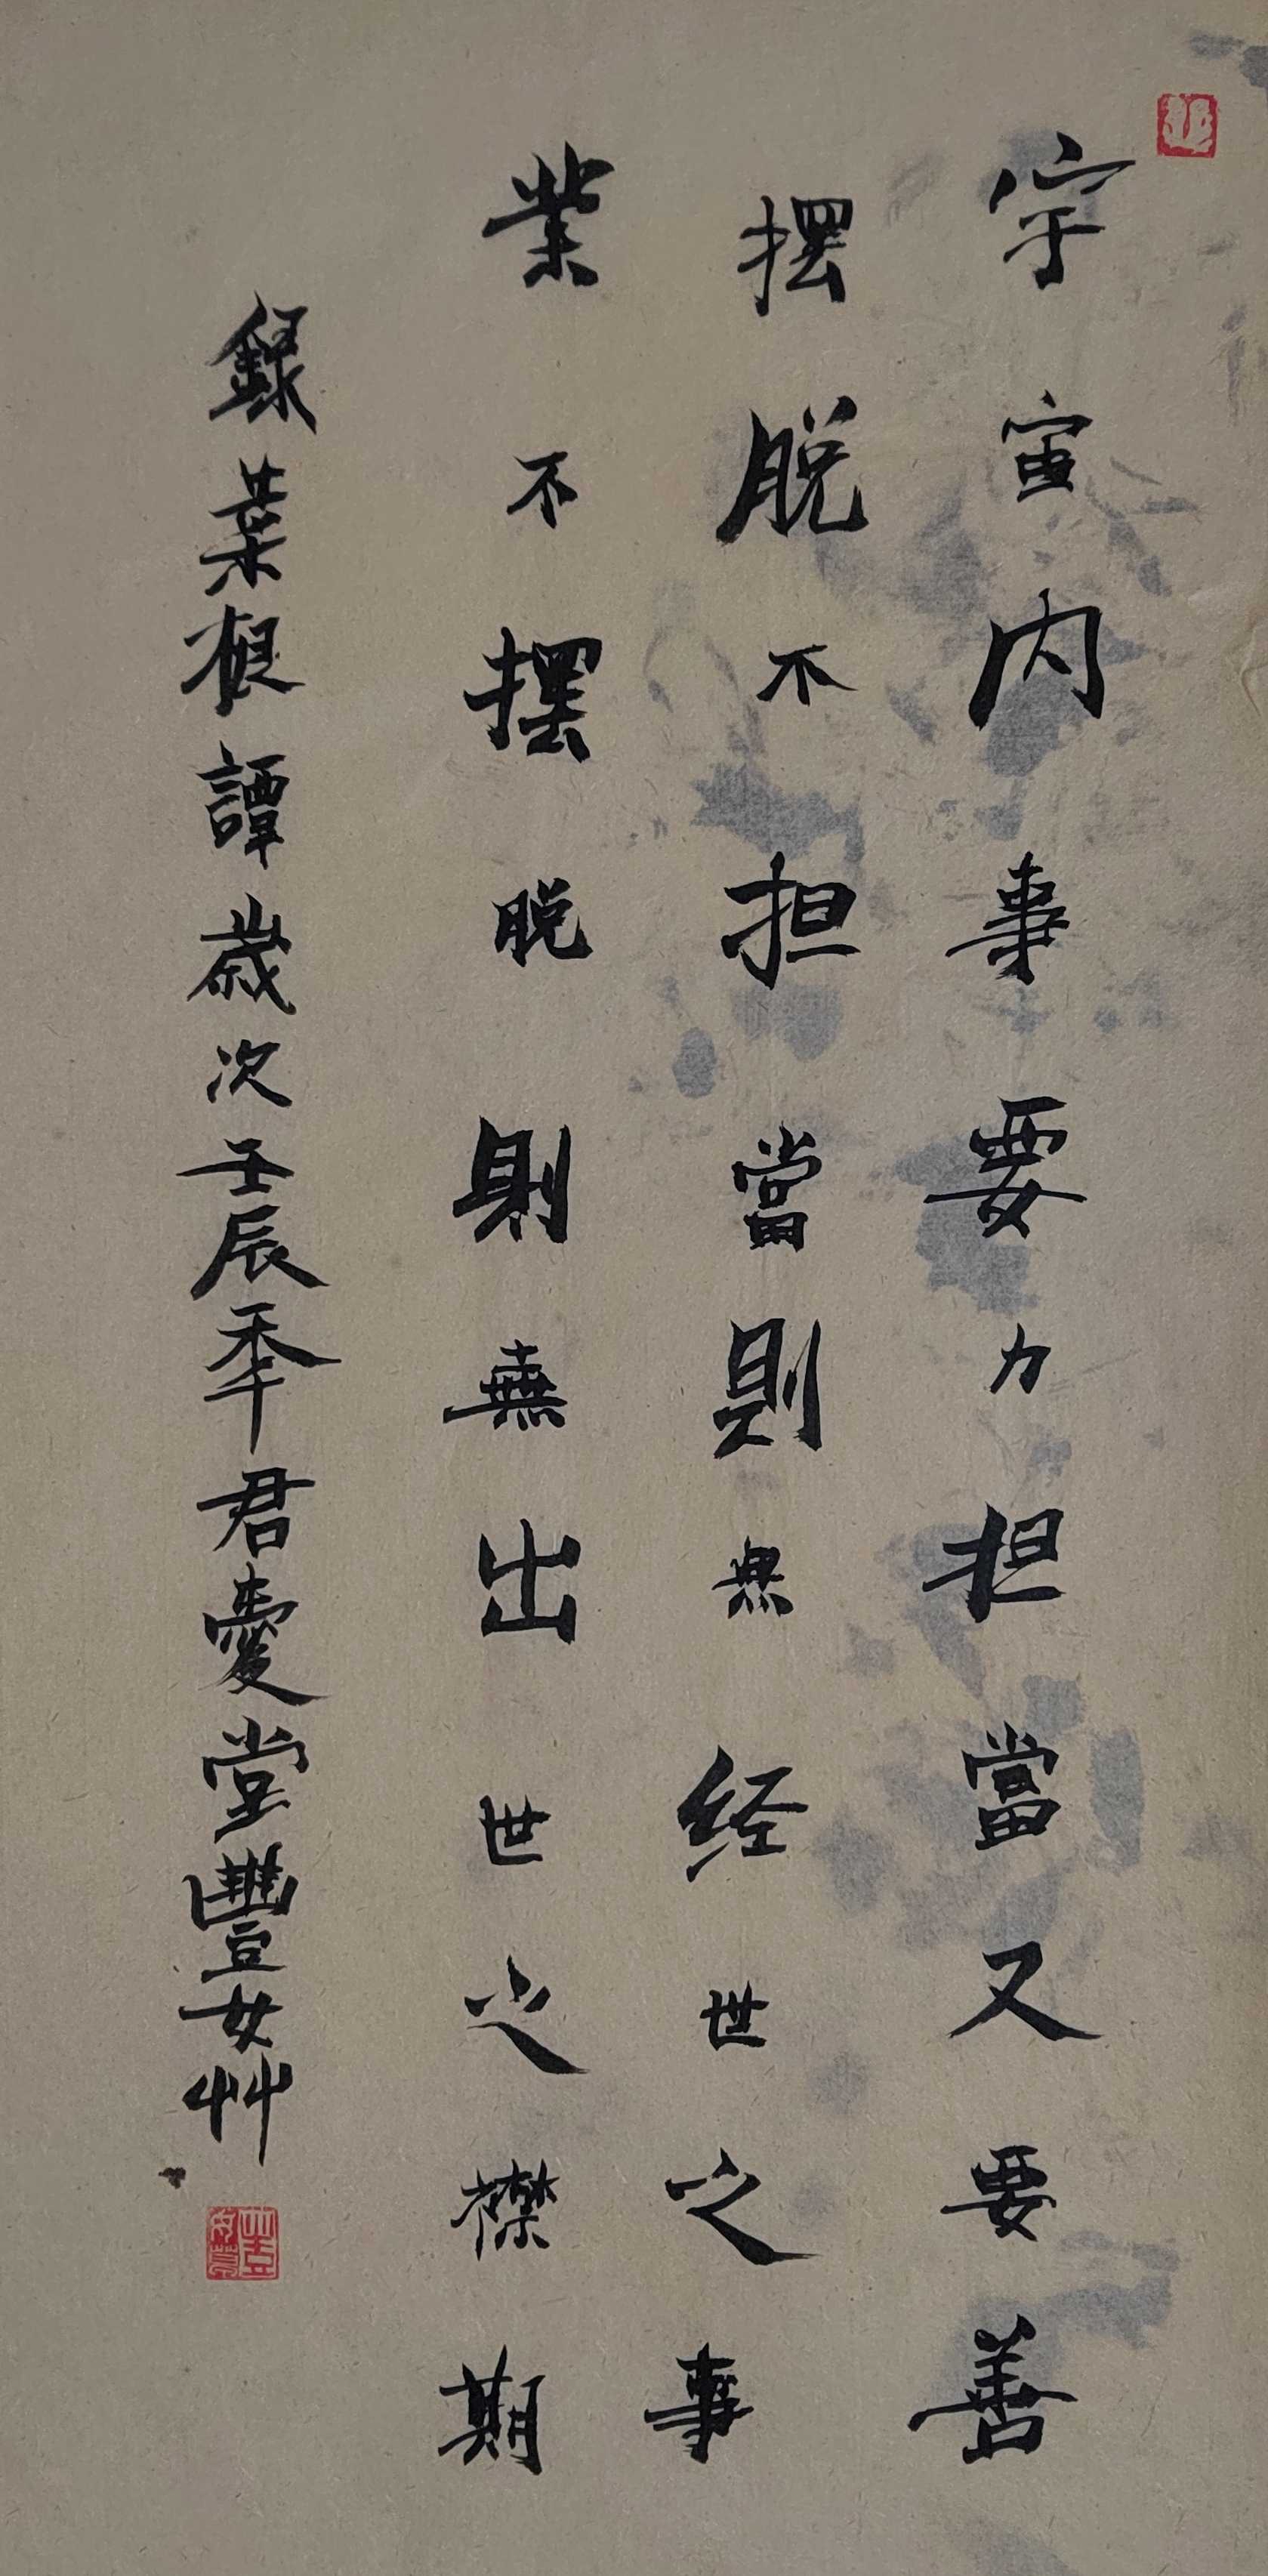 宇宙内事要力担當又要善
擺脱不担當則無经世之事
業不擺脱則無出世之襟期
録菜根譚歳次壬辰季君愛堂豐女艸